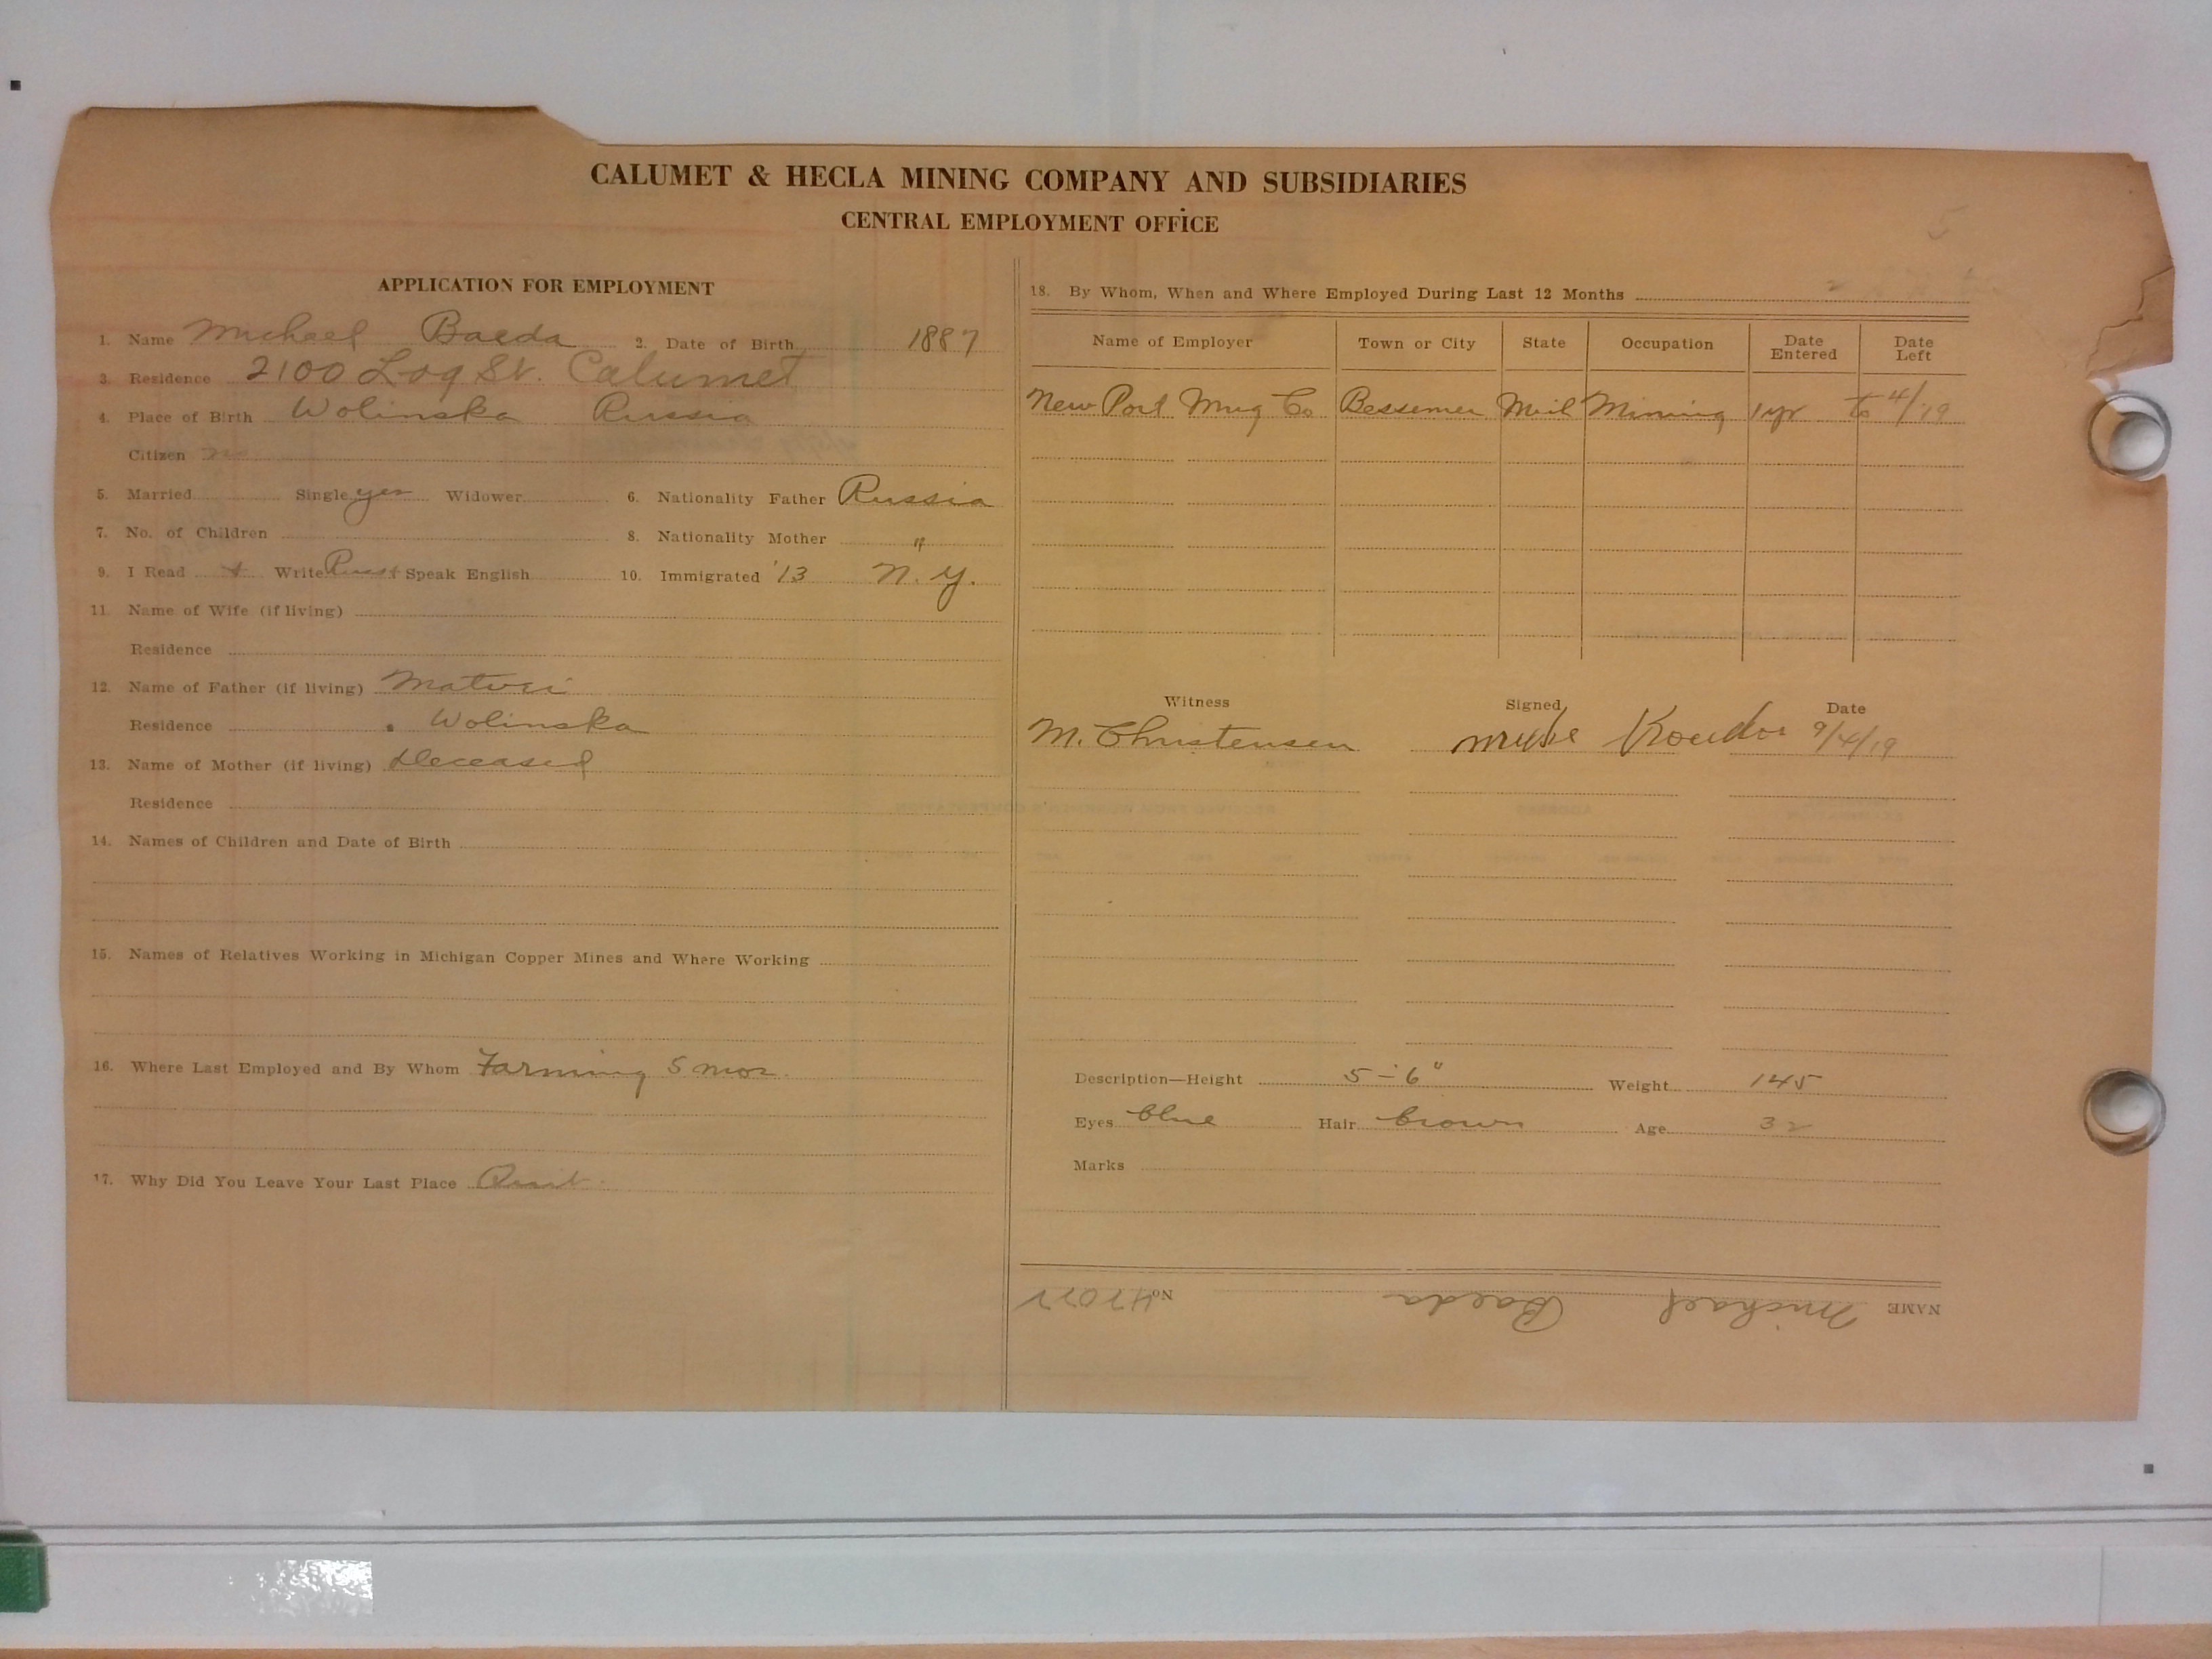 CALUMET & HECLA MINING COMPANY AND SUBSIDIARIES
CENTRAL EMPLOYMENT OFFICE
APPLICATION FOR EMPLOYMENT
1. Name Michael Baeda 2. Date of Birth 1887
3. Residence 2100 Log St. Calumet
4. Place of Birth Wolinska Russia
Citizen no
5. Married Single yes Widower 6. Nationality Father Russia
7. No. of Children 8. Nationality Mother "
9. I Read + Write Russ + Speak English 10. Immigrated '13 N.Y.
11. Name of Wife (if living)
Residence
12. Name of Father (if living) Matvei
Residence Wolinska
13. Name of Mother (if living) Deceased
Residence
14. Names of Children and Date of Birth
15. Names of Relatives Working in Michigan Copper Mines and Where Working
16. Where Last Employed and By Whom Farming 5 mos.
17. Why Did You Leave Your Last Place Quit
18. By Whom, When and Where Employed During Last 12 Months
Name of Employer Town or City State Occupation Date Entered Date Left
New Port Mng Co Bessemer Mich Mining 1 yr to 4/19
Witness Signed Date
M. Christensen 9/4/19
Description—Height 5-6" Weight 145
Eyes blue Hair brown Age 32
Marks
NAME Michael Baeda No.